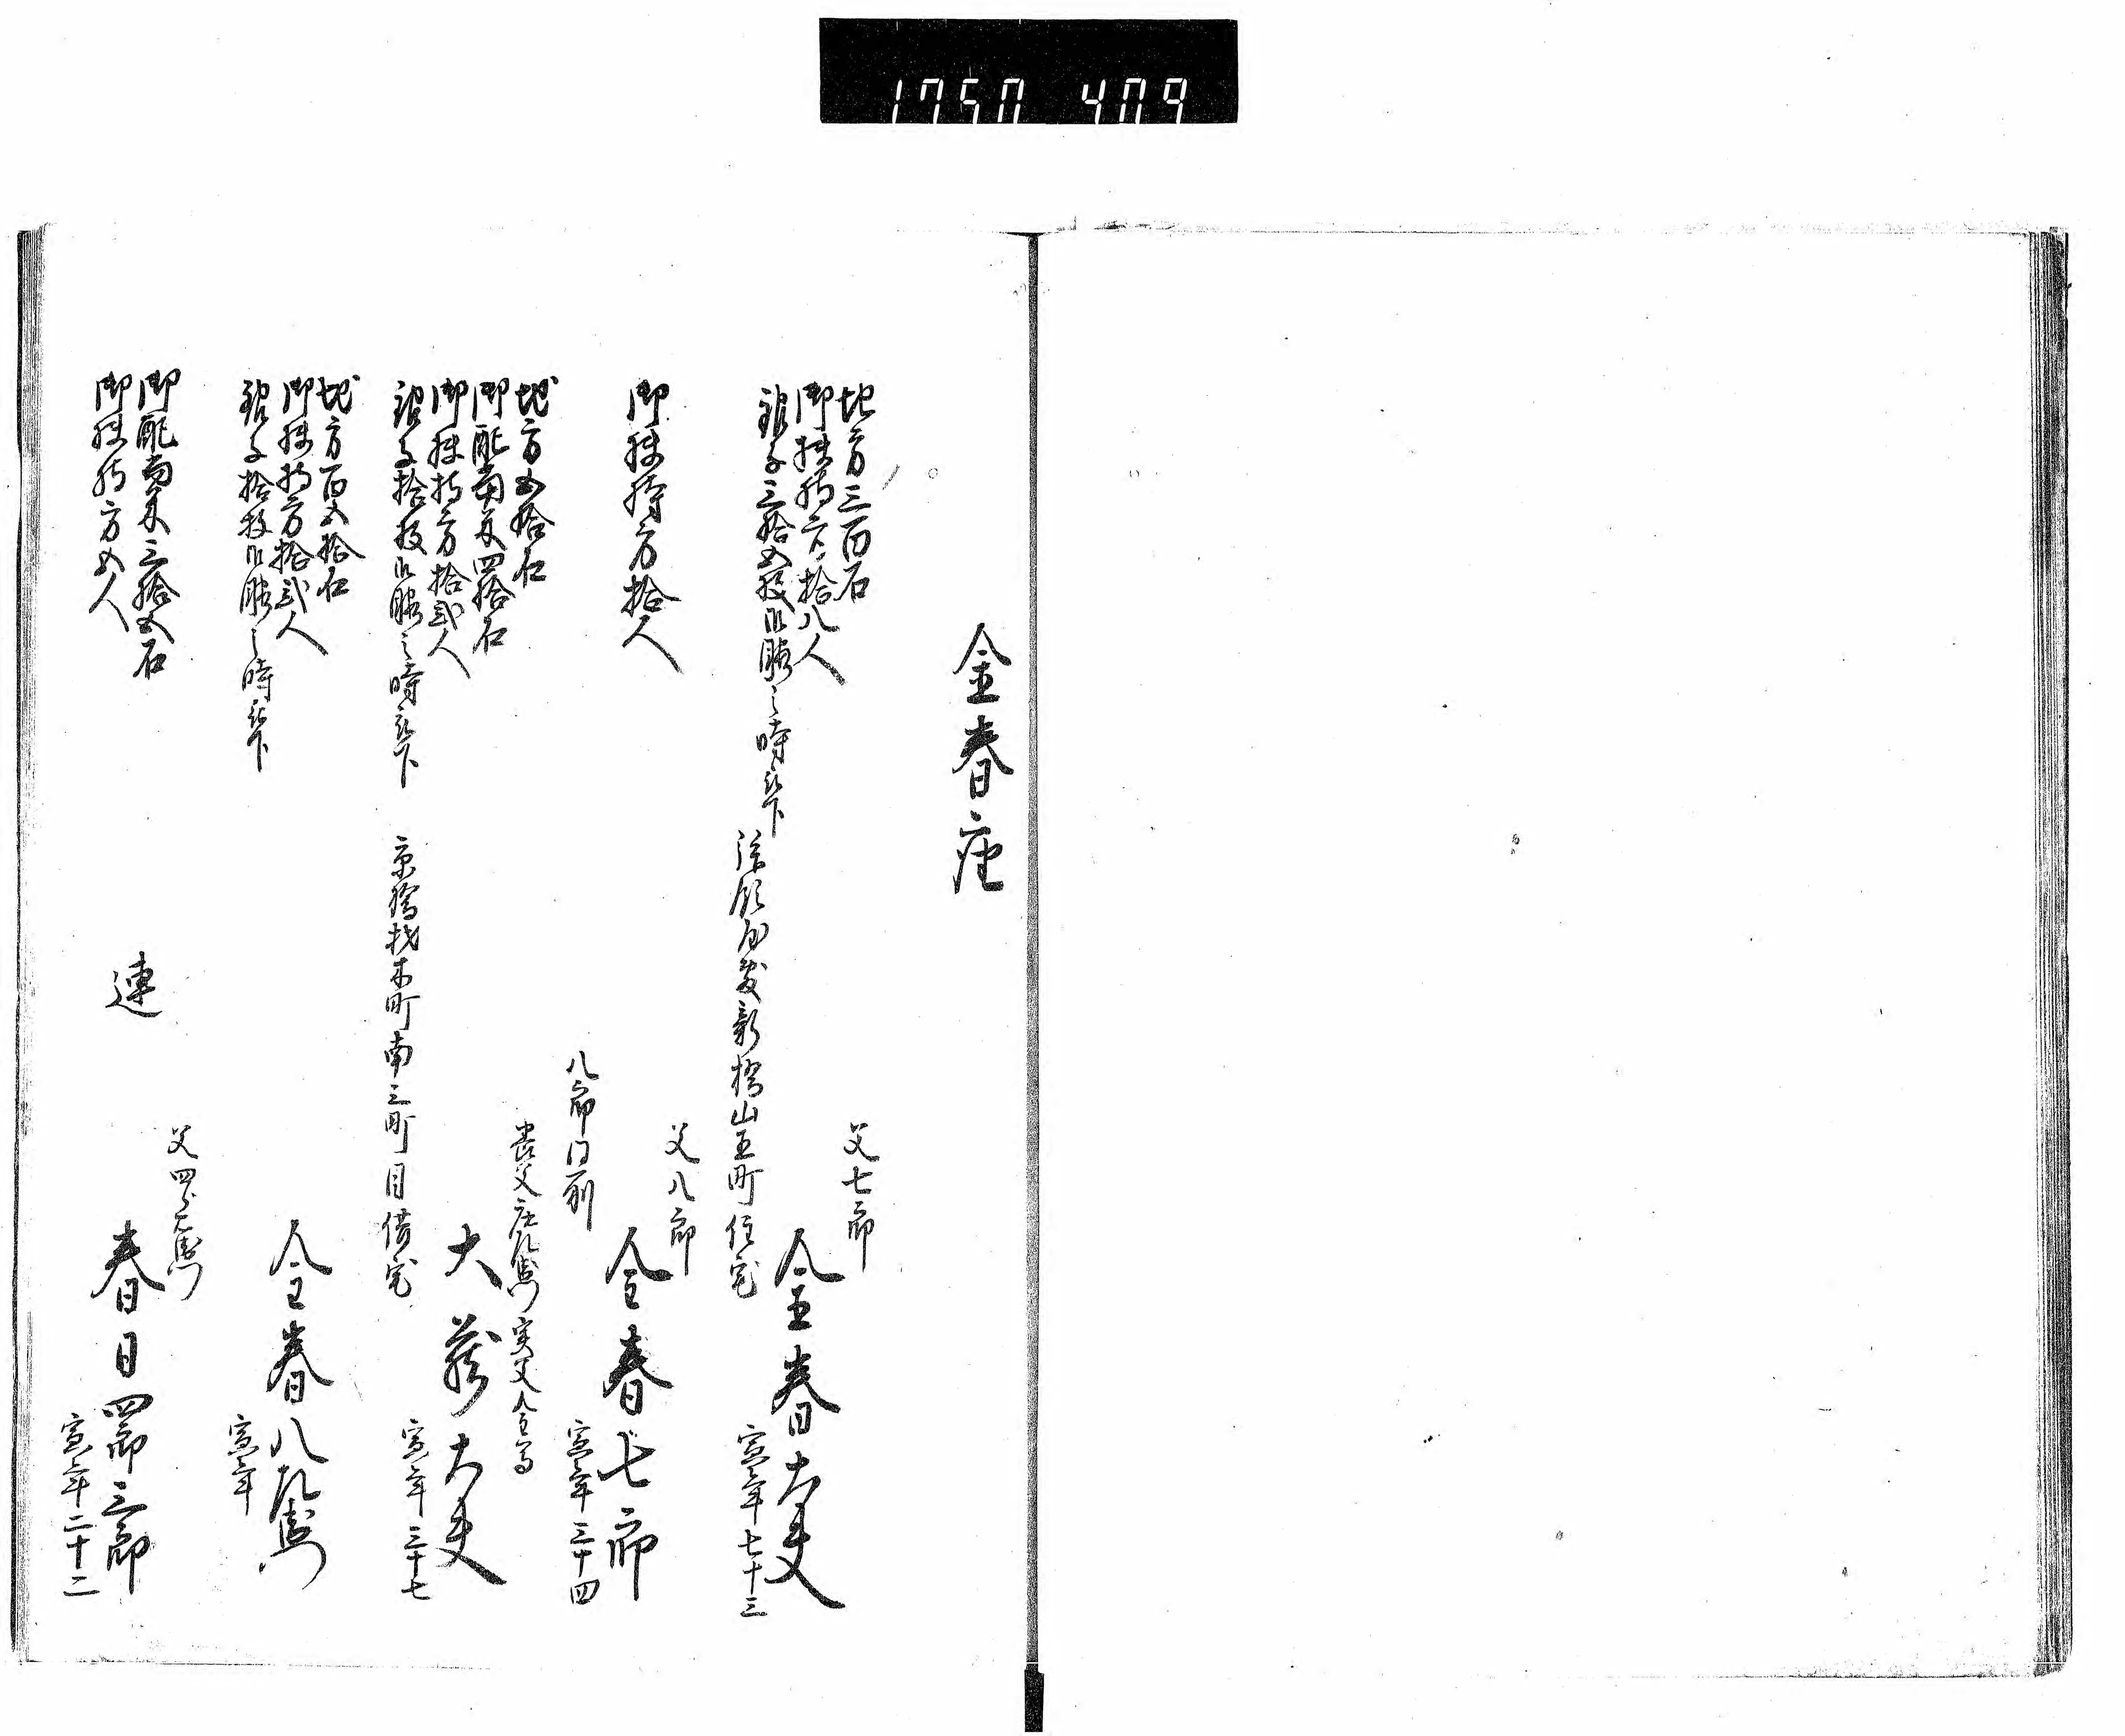 1750 409
金春座
地方三百石
御扶持方拾八人
銀子三拾五枚御暇之時被下
父七郎
金春大夫
寅年七十三
拝領屋敷新橋山王町住宅
御扶持方拾人
父八郎
金春七郎
寅年三十四
八郎同前
地方五拾石
御配当米四拾石
御扶持方拾弐人
銀子拾枚御暇之時被下
養父庄左衛門 実父
大蔵大夫
寅年三十七
京橋材木町南三町目借宅
地方百五拾石
御扶持方拾弐人
銀子拾枚御暇之時被下
金春八左衛門
寅年
御配当米三拾五石
御扶持方五人
連
父四郎右衛門
春日四郎三郎
寅年二十二